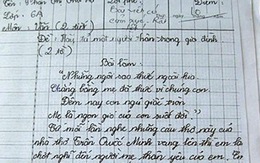 Lớp: 6A
Môn: Văn (2 tiết)
Đề: Hãy tả một người thân trong gia đình
(2 tờ)
Bài làm:
"Những ngôi sao thức ngoài kia
Chẳng bằng mẹ đã thức vì chúng con
Đêm nay con ngủ giấc tròn
Mẹ là ngọn gió của con suốt đời."
Cứ mỗi lần nghe những câu thơ này của
nhà thơ Trần Quốc Minh vang lên thì em là
chợt nghĩ đến người mẹ thân yêu của em.